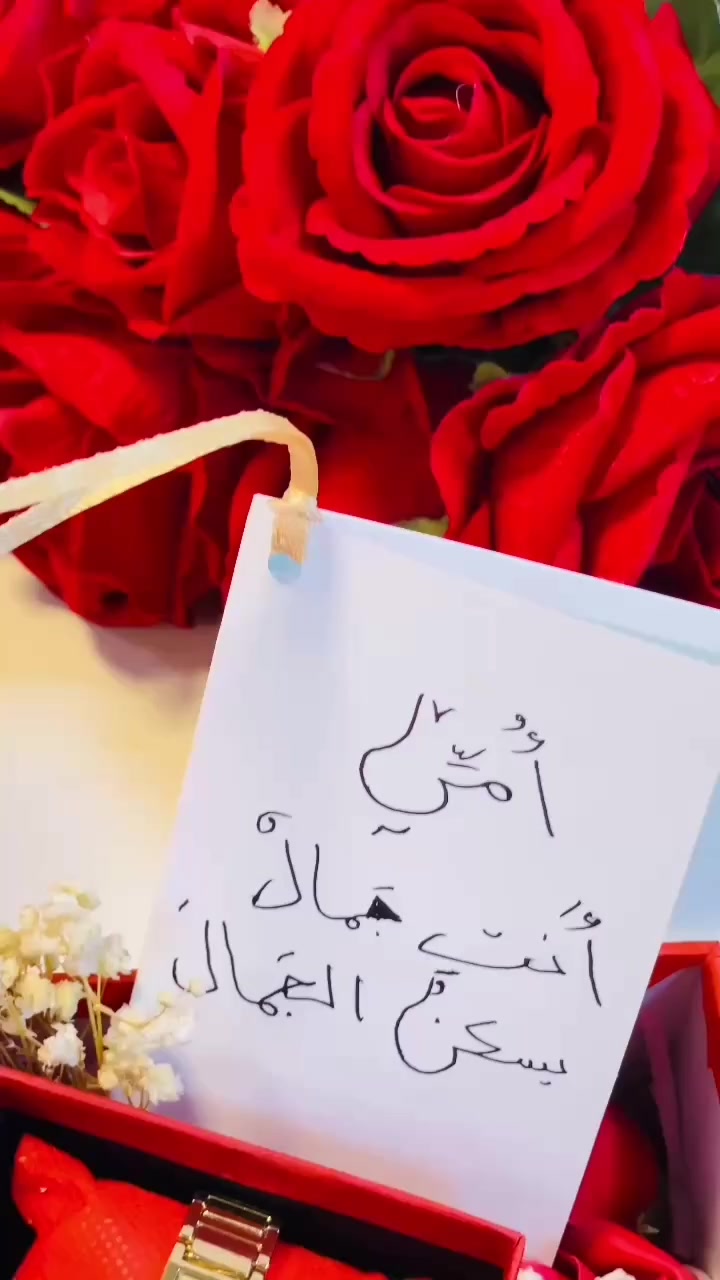 أُمّي
أُنتِ جمالٌ
يسكنُ الجمالَ